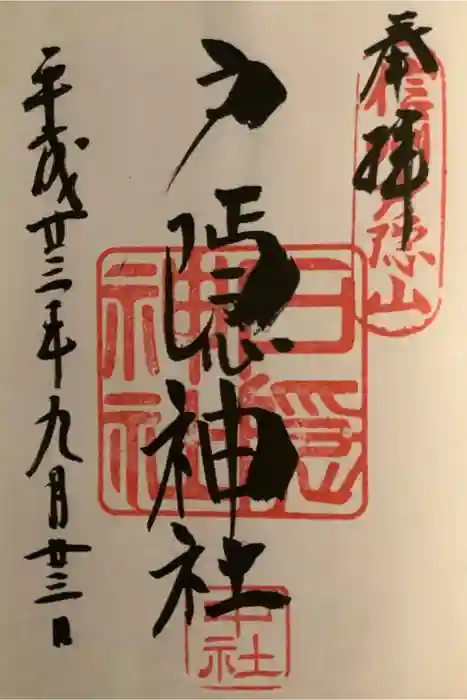 奉拝
信州戸隠山
戸隠神社
戸隠神社中社
中社
平成廿三年九月廿三日